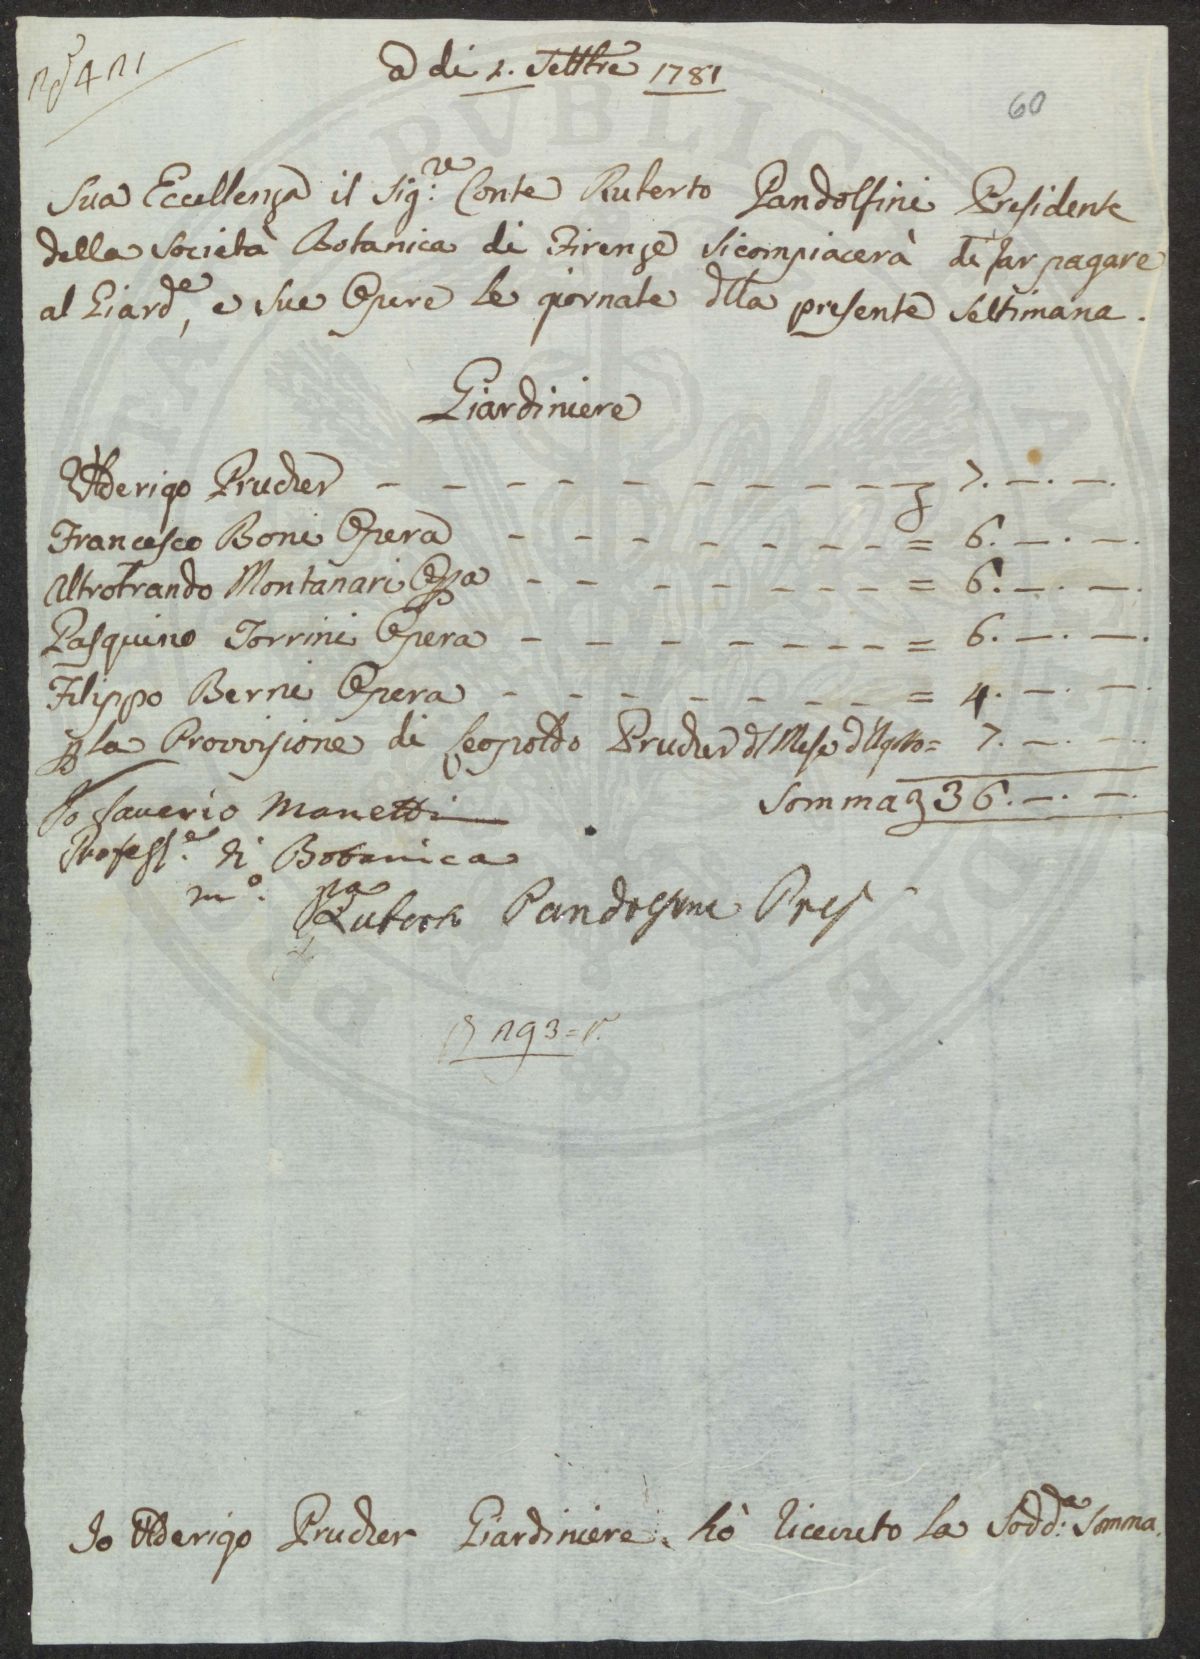 a di 2. Settbre 1781
60
Sua Eccellenza il Sig:re Conte Ruberto Pandolfini Presidente
della Società Botanica di Firenze si compiacerà di far pagare
al Giarde, e sue Opere le giornate dlla presente settimana.
Giardiniere
Ulderigo Prucher - - - - - - - - - - 7. —. —.
Francesco Boni Opera - - - - - - - = 6. —. —.
Altrobrando Montanari Opa - - - - - - - = 6. —. —.
Pasquino Torrini Opera - - - - - - - = 6. —. —.
Filippo Berni Opera - - - - - - - = 4. —. —.
la Provvisione di Leopoldo Prucher dl Mese d'Agsto = 7. —. —.
Somma 36. —. —.
Io Saverio Manetti
Profess:e di Botanica
mo. pa
Ruberto Pandolfini Pres
Io Ulderigo Prucher Giardiniere hò ricevuto la Sodd:a Somma.
PUBLIC